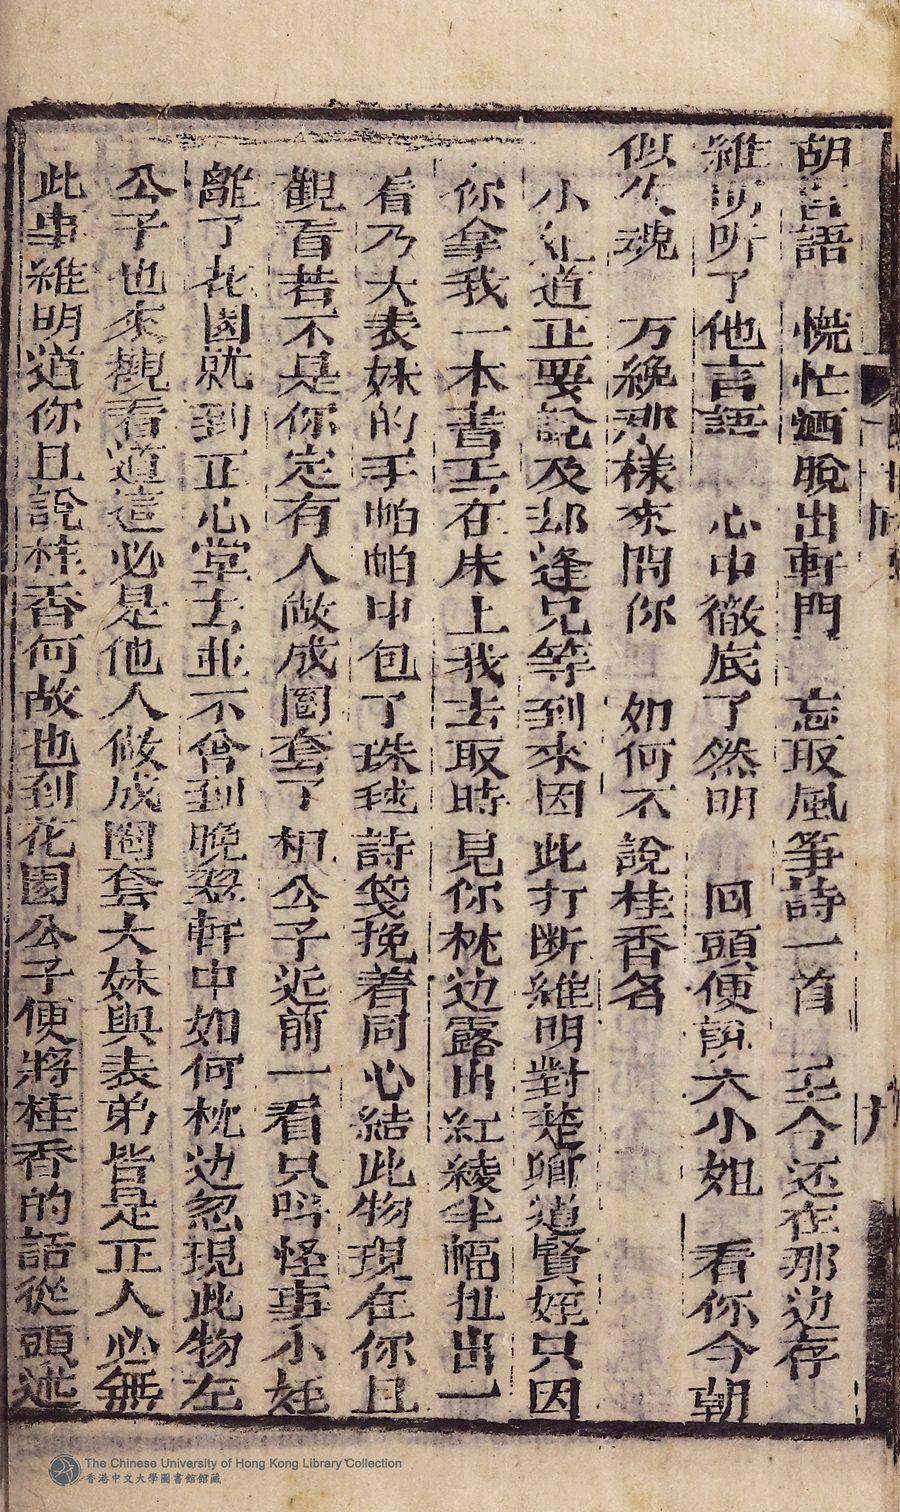 胡言語　慌忙洒脫出軒門　忘取風筝詩一首　至今还在那边存
維明听了他言語　心中徹底了然明　囬頭便說大小姐　看你今朝
似失魂　万綫那樣來問你　如何不說桂香名
小姐道正要說及却逢兄等到來因此打断維明對楚卿道賢姪只因
你拿我一本書去在床上我去取時見你枕边露出红綾半幅扯出一
看乃大表妹的手帕帕中包了珠毬詩箋挽着同心結此物現在你且
觀看若不是你定有人做成圈套了桓公子近前一看只呌怪事小姪
離了花園就到正心堂去並不曾到晚翠軒中如何枕边忽現此物左
公子也來觀看道這必是他人做成圈套大妹與表弟皆是正人必無
此事維明道你且說桂香何故也到花園公子便將桂香的話從頭述
The Chinese University of Hong Kong Library Collection
香港中文大學圖書館館藏